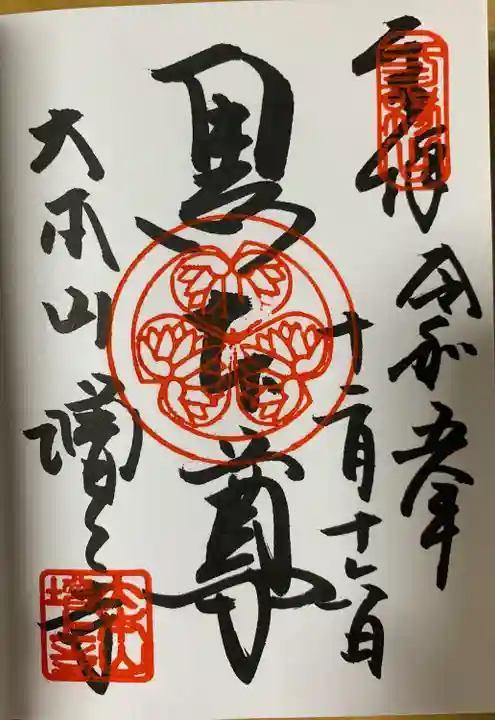 奉拝
令和五年
十二月十六日
黒本尊
大本山増上寺